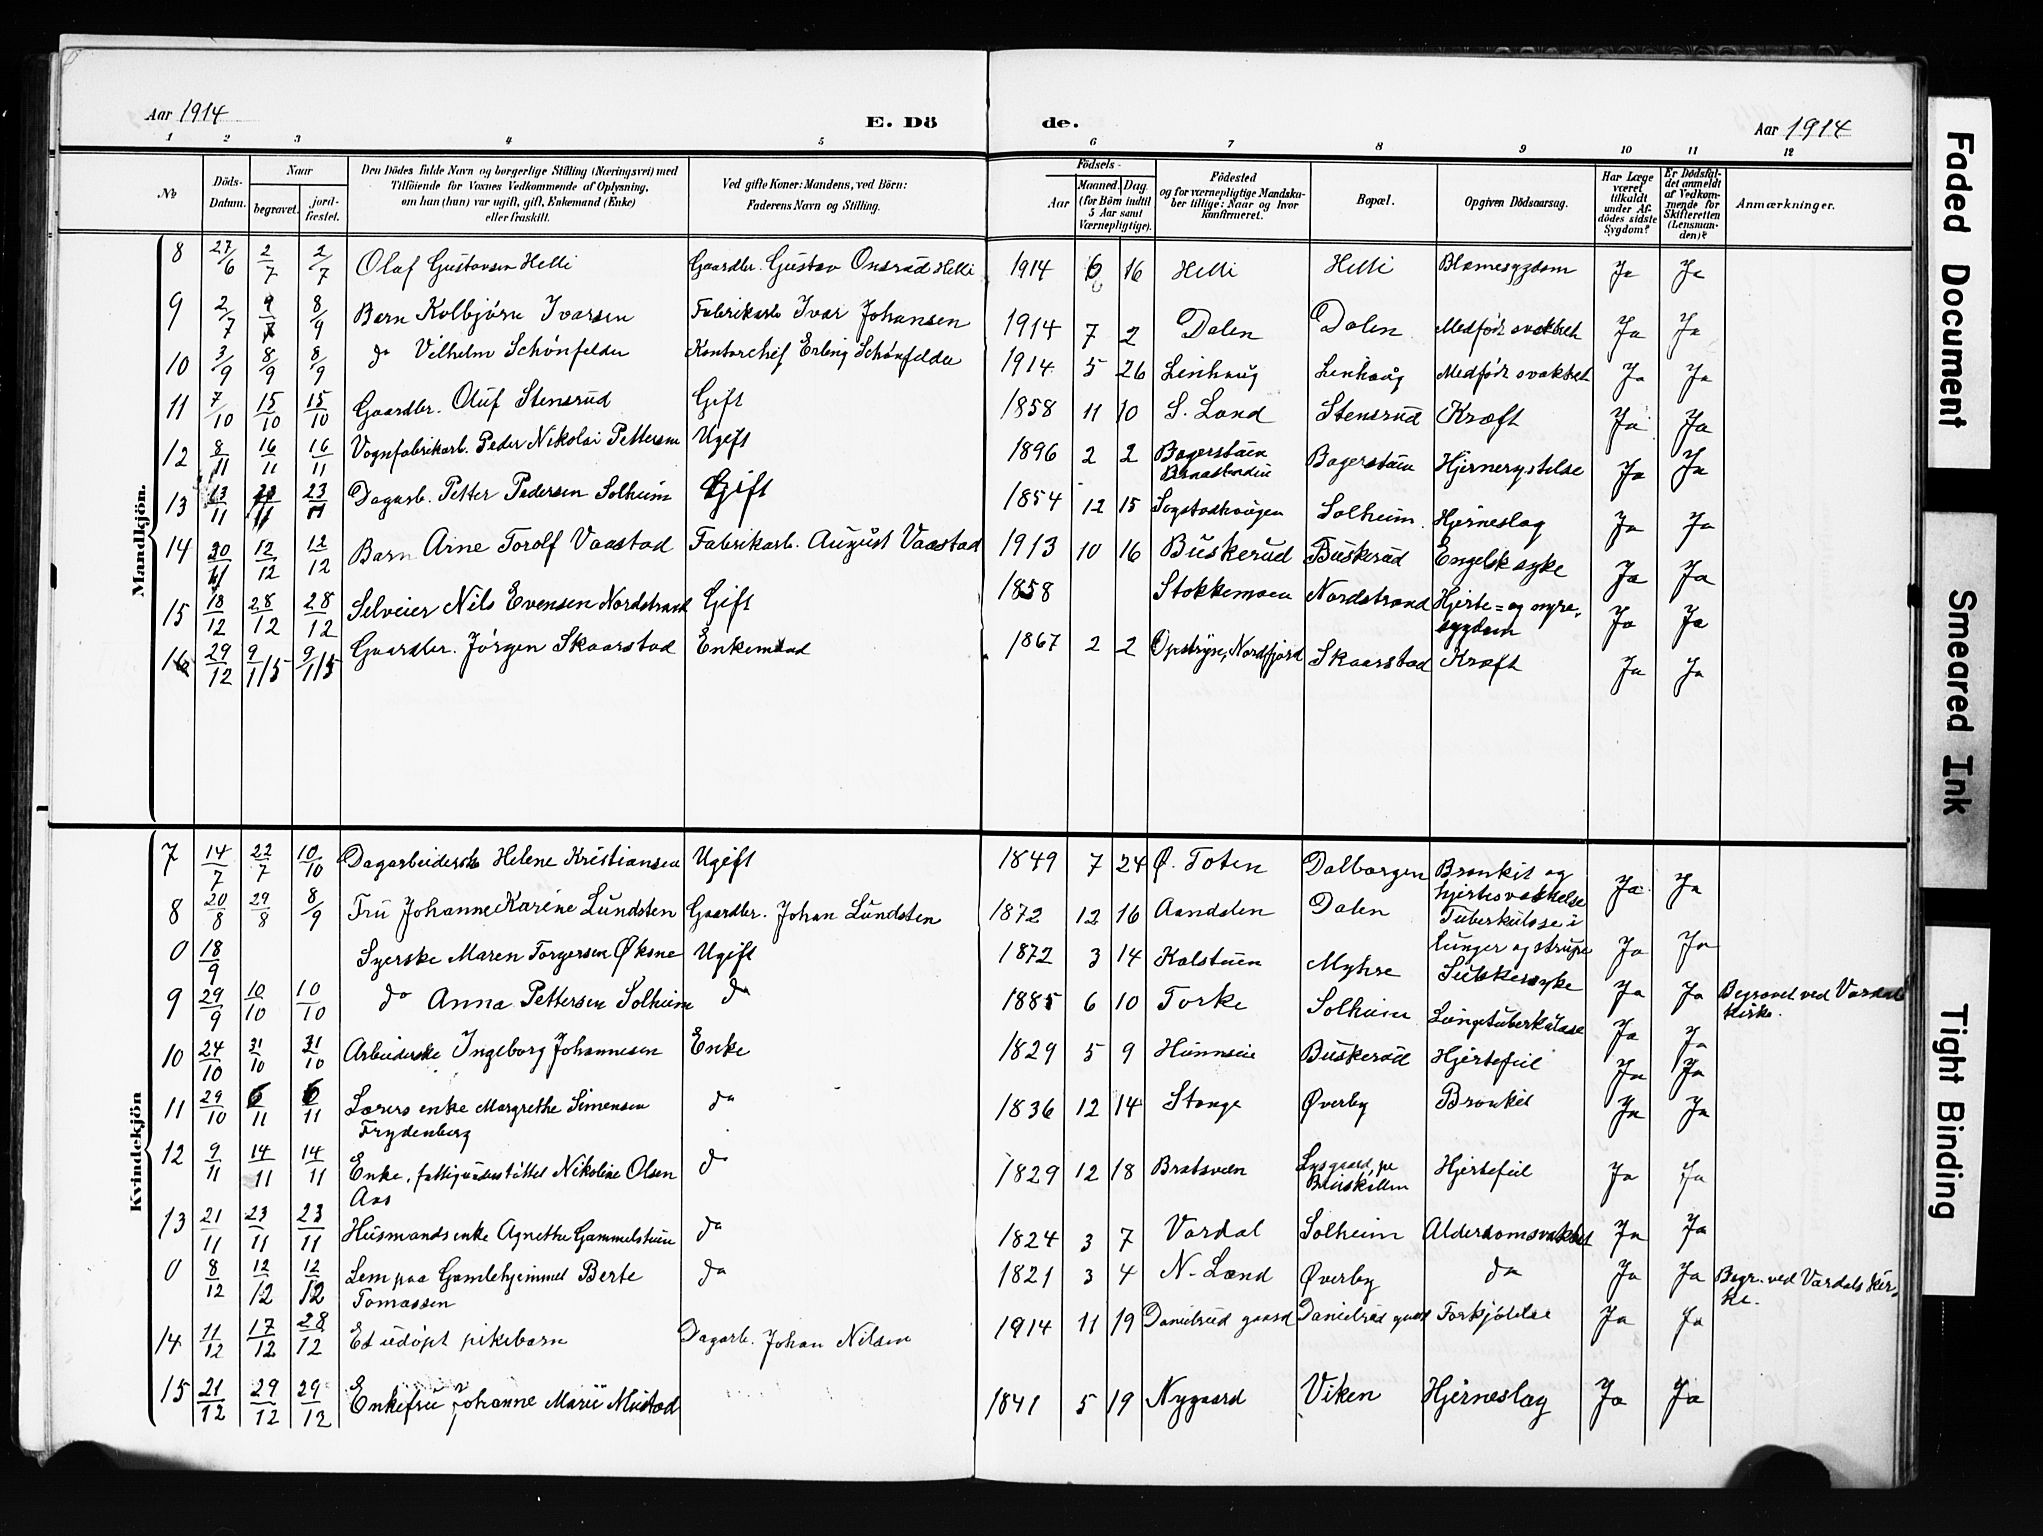 Aar 1914
E. Dö
de.
Aar 1914
1 2 3 4 5 6 7 8 9 10 11 12
No
Döds-
Datum.
Naar
begravet.
jord-
fæstet.
Den Dödes fulde Navn og borgerlige Stilling (Næringsvei) med
Tilföiende for Voxnes Vedkommende af Oplysning,
om han (hun) var ugift, gift, Enkemand (Enke)
eller fraskilt.
Ved gifte Koner: Mandens, ved Börn:
Faderens Navn og Stilling.
Födsels-
Aar
Maaned. Dag.
(for Börn indtil
5 Aar samt
Værnepligtige).
Födested
og for værnepligtige Mandska-
ber tillige: Naar og hvor
konfirmeret.
Bopæl.
Opgiven Dödsaarsag.
Har Læge
været
tilkaldt
under Af-
dödes sidste
Sygdom?
Er Dödsfal-
det anmeldt
af Vedkom-
mende for
Skifteretten
(Lensman-
den)?
Anmærkninger.
Mandkjön.
8 27/6 2/7 2/7 Olaf Gustavsen Helli Gaardbr. Gustav Onsrud Helli 1914 6 16 Helli Helli Blæmesygdom Ja Ja
9 2/7 9/7 8/9 Barn Kolbjørn Ivarsen Fabrikarb Ivar Johansen 1914 7 2 Dalen Dalen Medfødt svakhet Ja Ja
10 3/9 8/9 8/9 do Vilhelm Schønfelder Kontorchef Erling Schønfelder 1914 5 26 Linhaug Linhaug Medfødt svakhet Ja Ja
11 7/10 15/10 15/10 Gaardbr. Oluf Stensrud Gift 1858 11 10 S. Land Stensrud Kræft Ja Ja
12 8/11 16/11 16/11 Vognfabrikarb. Peder Nikolai Pettersen Ugift 1896 2 2 Bagerstuen
Braastadlien Bagerstuen Hjernerystelse Ja Ja
13 13/11 23/11 23/11 Dagarb. Petter Pedersen Solheim Gift 1854 12 15 Sogstadhaugen Solheim Hjerneslag Ja Ja
14 30/11 12/12 12/12 Barn Arne Torolf Vaastad Fabrikarb. August Vaastad 1913 10 16 Buskerud Buskerud Engelsk syke Ja Ja
15 18/12 28/12 28/12 Selveier Nils Evensen Nordstrand Gift 1858 Stokkemoen Nordstrand Hjerte= og nyre-
sygdom Ja Ja
16 29/12 9/1 15 9/1 15 Gaardbr. Jørgen Skaarstad Enkemand 1867 2 2 Opstryn, Nordfjord Skaarstad Kræft Ja Ja
Kvindekjön
7 14/7 22/7 10/10 Dagarbeiderske Helene Kristiansen Ugift 1849 7 24 Ø. Toten Dalborgen Bronkit og
hjertesvakkelse Ja Ja
8 20/8 29/8 8/9 Fru Johanne Karine Lundsten Gaardbr. Johan Lundsten 1872 12 16 Aandalen Dalen Tuberkulose i
lunger og strupe Ja Ja
0 18/9 Syerske Maren Torgersen Øksne Ugift 1872 3 14 Kalstuen Myhre Sukkersyke Ja Ja Begravet ved Vardal
kirke.
9 29/9 10/10 10/10 do Anna Pettersen Solheim do 1885 6 10 Torke Solheim Lungetuberkulose Ja Ja
10 24/10 31/10 31/10 Arbeiderske Ingeborg Johannesen Enke 1829 5 9 Hunnseie Buskerud Hjertefeil Ja Ja
11 29/10 6/11 6/11 Lærers enke Margrethe Simensen
Frydenberg do 1836 12 14 Stange Øverby Bronkit Ja Ja
12 9/11 14/11 14/11 Enke, fattigunderstøttet Nikoline Olsen
Aas do 1829 12 18 Bratsveen Lysgaard, pr Hjertefeil Ja Ja
13 21/11 23/11 23/11 Husmandsenke Agnethe Gammelstuen do 1824 3 7 Vardal Solheim Alderdomsvakhet Ja Ja
0 8/12 12/12 12/12 Lem paa Gamlehjemmet Berte
Tomassen do 1821 3 4 N. Land Øverby do Ja Ja Begr. ved Vardals kir-
ke.
14 11/12 17/12 28/12 Et udøpt pikebarn Dagarb. Johan Nilsen 1914 11 19 Danielsrud gaard Danielsrud gaard Forkjølelse Ja Ja
15 21/12 29/12 29/12 Enkefru Johanne Marie Mustad 1841 5 19 Nygaard Viken Hjerneslag Ja Ja
Faded Document
Smeared Ink
Tight Binding